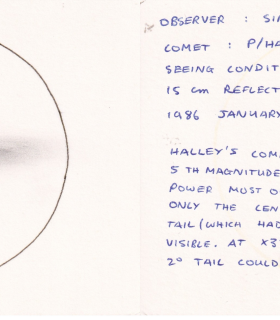 OBSERVER : SI
COMET : P/HA
SEEING CONDIT
15 cm REFLECT
1986 JANUARY
HALLEY'S COM
5TH MAGNITUDE
POWER MOST O
ONLY THE CEN
TAIL (WHICH HAD
VISIBLE. AT X3
2° TAIL COULD